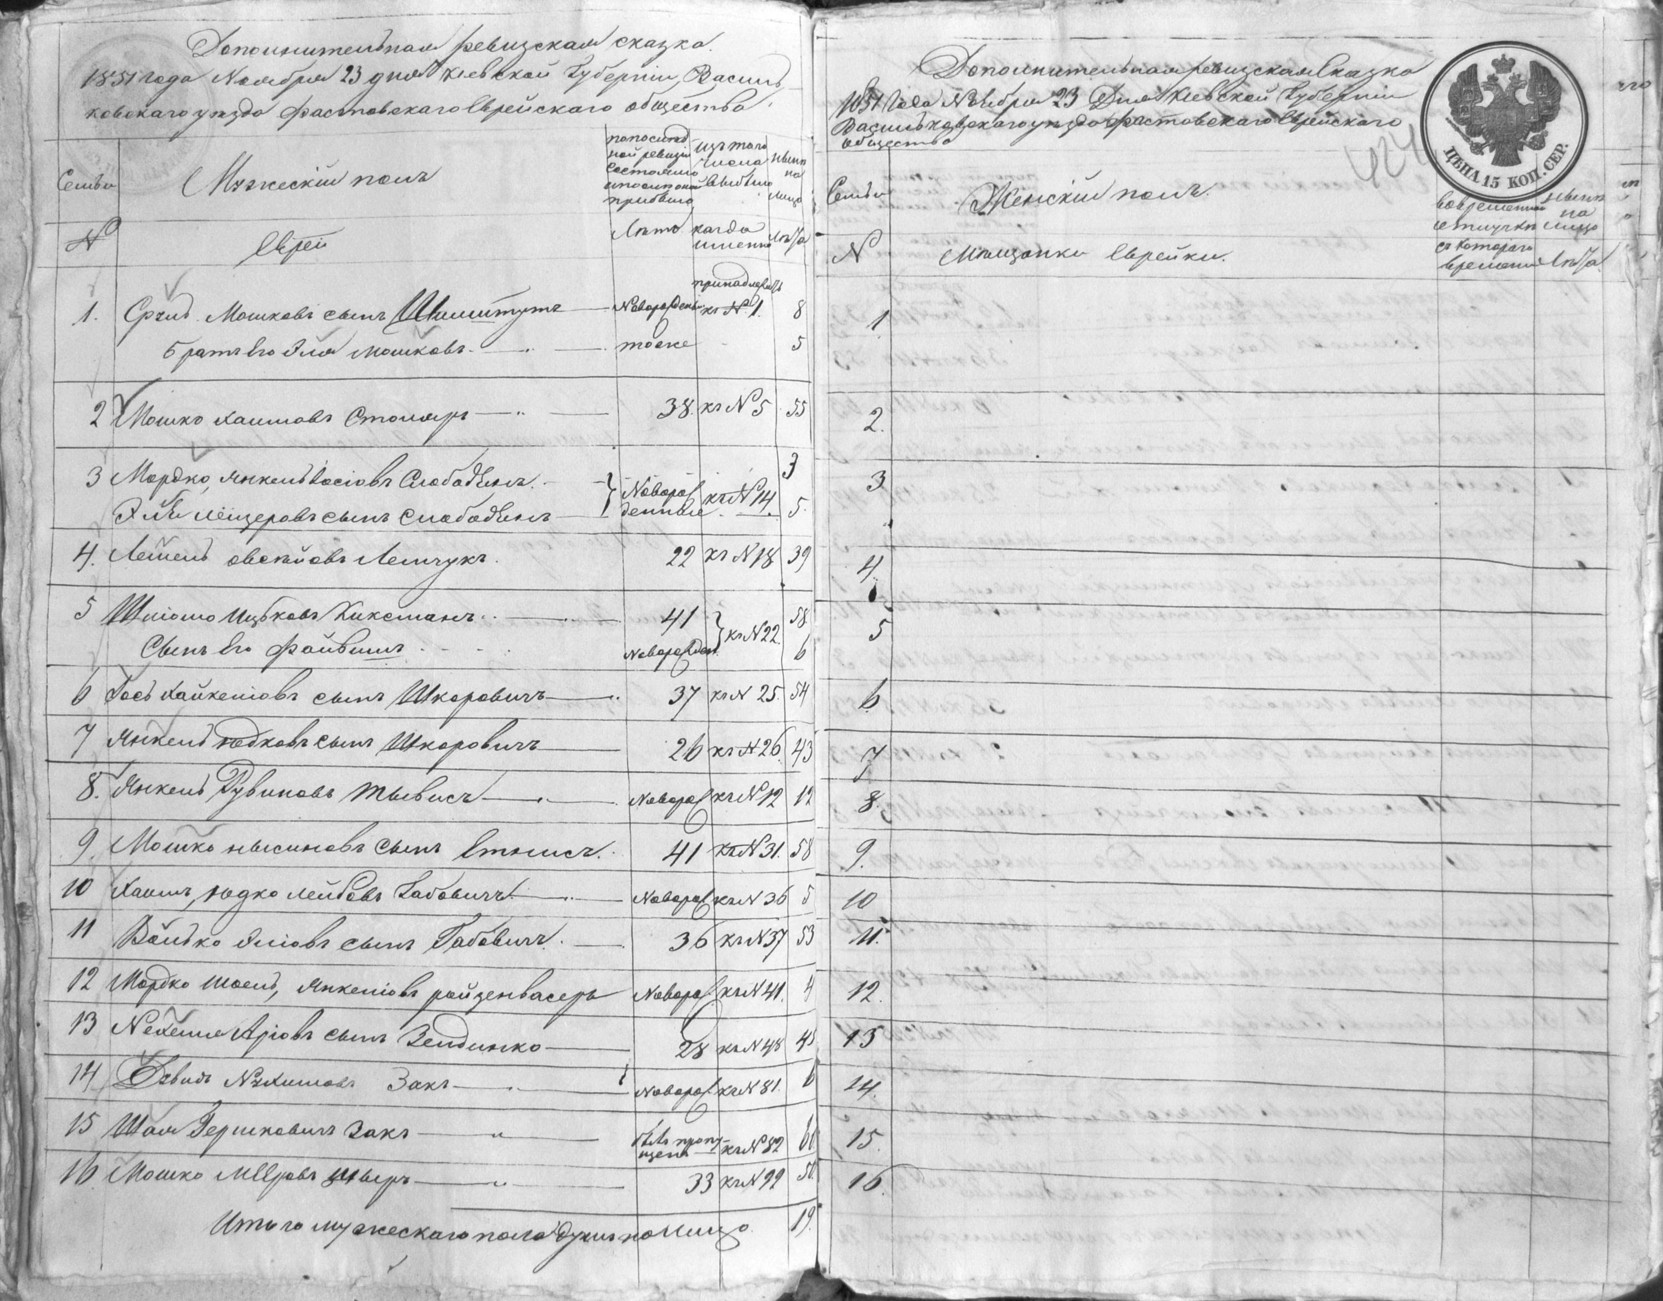 Дополнительная ревизская сказка.
1851 года Ноября 23 дня Киевской Губернии, Василь-
ковского уезда Фастовского Еврейского общества.
Семьи
Мужеский полъ
по последней ревизии состояло и после того прибыло
изъ того числа выбыло
ныне на лицо
№
Еврей
Летъ
когда именно
Лета
1. Сруль Мошковъ сынъ Шмитутъ Новорожден. принадлежитъ къ № 1. 8
братъ его Эля Мошковъ. тоже 5
2 Мошко Хаимовъ Столяръ 38. къ № 5 55
3 Мордко, Янкель Іосіовъ Слободянъ. Новорожденные. къ № 14. 3
Эля Лейзеровъ сынъ Слободянъ 5.
4. Лейбель Овсѣйовъ Лемчукъ. 22 къ № 18 39
5 Шліомо Ицковъ Киксманъ. 41 къ № 22 58
Сынъ его Файвишъ. Новорожден. 6
6 Гось Хайкеліовъ сынъ Шкоровичъ 37 къ № 25. 54
7 Янкель Юдковъ сынъ Шкоровичъ 26 къ № 26. 43
8. Янкель Рувиновъ Тывисъ Новорож къ № 12 12
9. Мошко Нысиновъ сынъ Етнисъ. 41 къ № 31. 58
10 Хаимъ, Юдко Лейбовъ Бабовичъ Новорож къ № 36 5
11 Волько Эліовъ сынъ Бабовичъ. 36 къ № 37 53
12 Мордко Шоель, Янкеліовъ Ройзенвасеръ Новорож къ № 41. 4
13 Нехемие Аріовъ сынъ Зендинко 28 къ № 48 45
14 Довидъ Нухимовъ Закъ Новорож къ № 81. 6
15 Шая Гершковичъ Закъ былъ пропущенъ къ № 82 60
16 Мошко Мееровъ Шверъ 33 къ № 99 50
Итого мужескаго пола душъ на лицо. 19.
Дополнительная ревизская Сказка
1851 Года Ноября 23 Дня Киевской Губернии
Васильковского уезда Фастовского Еврейского
общества
ЦѢНА 15 КОП. СЕР.
424
Семьи
Женскій полъ.
во временной отлучке
ныне на лицо
№
Мещанки Еврейки.
съ котораго времени
Лета.
1
2.
3
4.
5
6.
7
8.
9.
10
11.
12.
13
14.
15.
16.